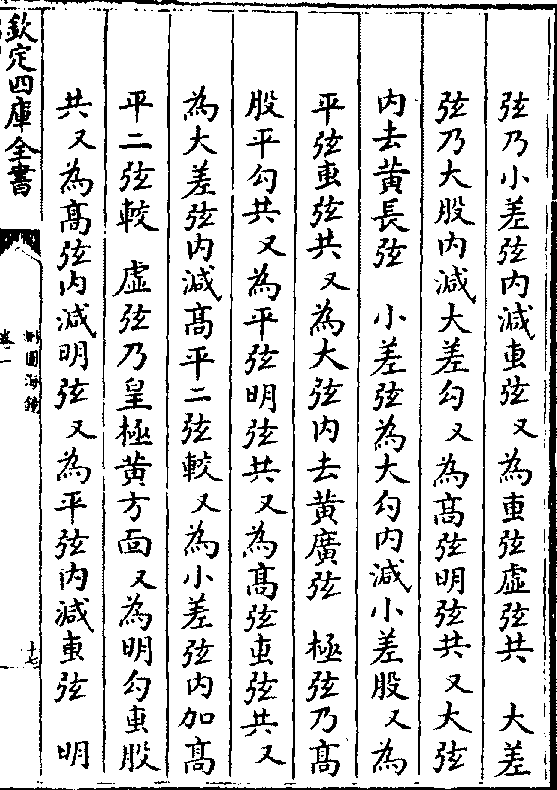 弦乃小差弦内減叀弦又為叀弦虚弦共　大差
弦乃大股内減大差勾又為髙弦明弦共又大弦
内去黄長弦　小差弦為大勾内減小差股又為
平弦叀弦共又為大弦内去黄廣弦　極弦乃髙
股平勾共又為平弦明弦共又為髙弦叀弦共又
為大差弦内減髙平二弦較又為小差弦内加髙
平二弦較　虚弦乃皇極黄方面又為明勾叀股
共又為髙弦内減明弦又為平弦内減叀弦　明
欽定四庫全書
測圓海鏡
卷一
十七